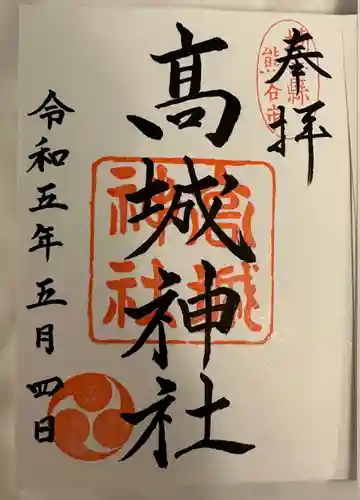 奉拝
埼玉縣
熊谷市
髙城神社
高城
神社
令和五年五月四日